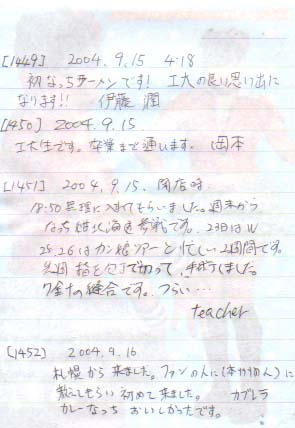 [1449] 2004.9.15 4:18
初なっちラーメンです! 工大の良い思い出に
なります!! 伊藤 潤
[1450] 2004.9.15
工大生です。卒業まで通います. 岡本
[1451] 2004.9.15. 閉店時
18:50 無理に入れてもらいました。週末から
なっち娘北海道参戦です. 23日はW
25.26はカン娘ツアーと忙しい2週間です。
先週 指を包丁で切って、
7針の縫合です。つらい…
teacher
[1452] 2004.9.16
札幌から来ました。ファンの人に
教えてもらい初めて来ました。カブレラ
カレーなっち おいしかったです。